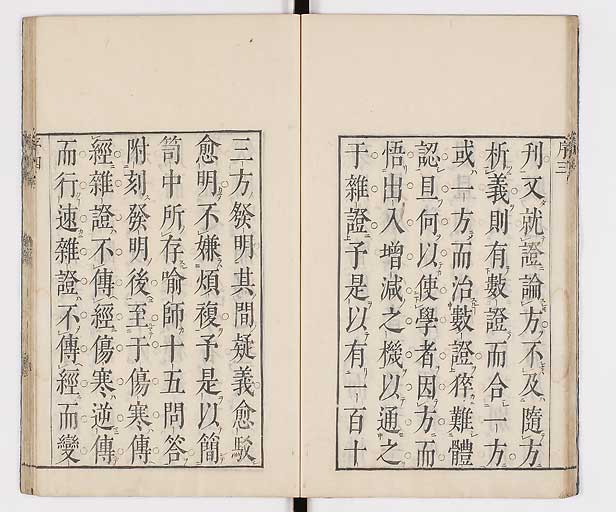 刋文就證論方不及隨方
析義則有數證而合一方
或一方而治數證猝難體
認且何以使學者因方而
悟出入增減之機以通之
于雜證予是以有一百十
三方發明其間疑義愈駁
愈明不嫌煩複予是以簡
笥中所存喻師十五問答
附刻發明後至于傷寒傳
經雜證不傳經傷寒逆傳
而行速雜證不傳經而變
序三
序四